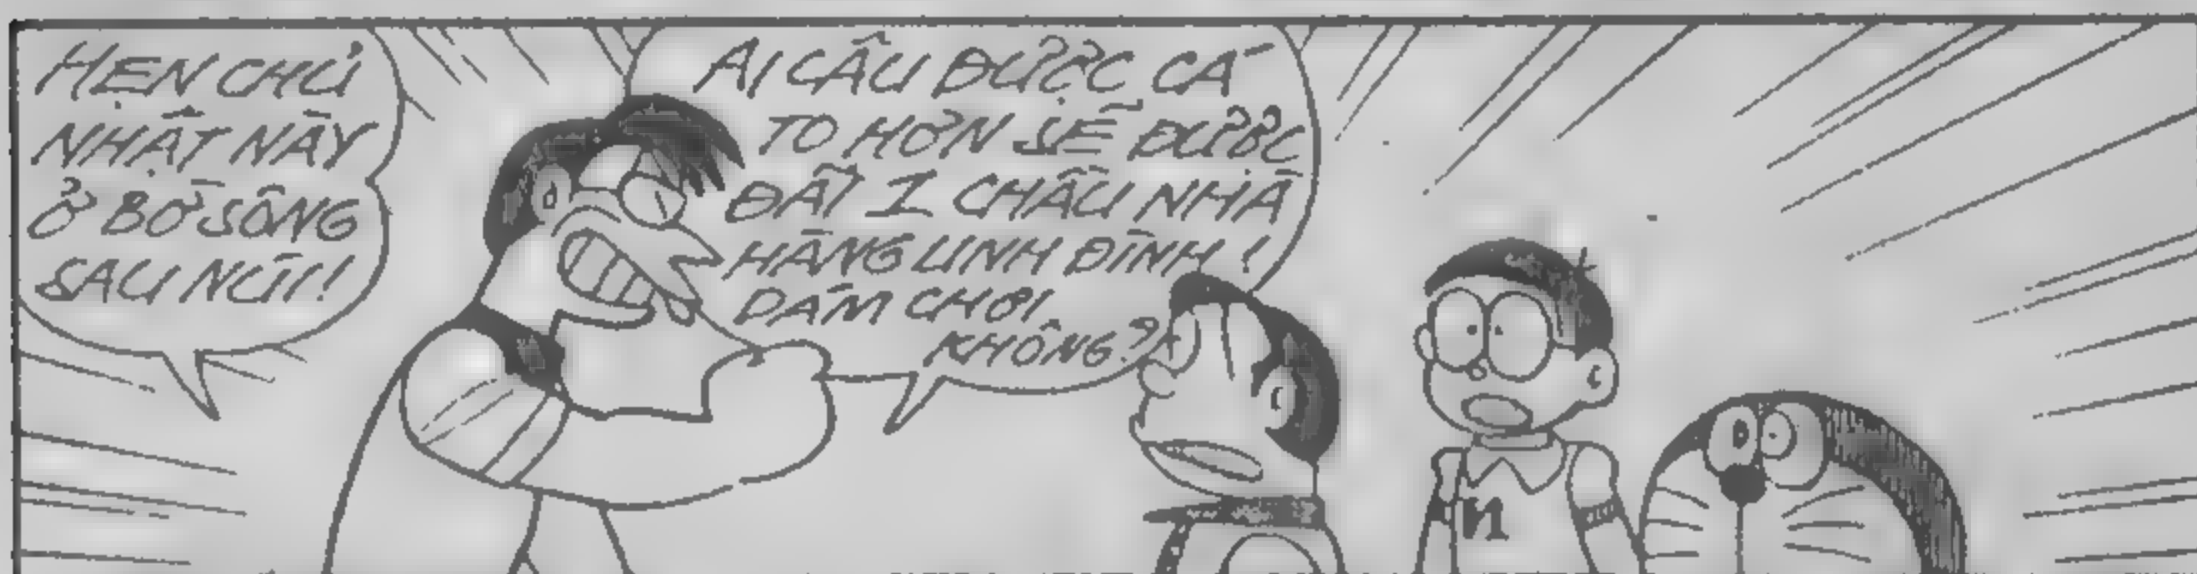 HẸN CHỦ
NHẬT NÀY
Ở BỜ SÔNG
SAU NÚI!
AI CÂU ĐƯỢC CÁ
TO HƠN SẼ ĐƯỢC
ĐÃI 1 CHẦU NHÀ
HÀNG LINH ĐÌNH!
DÁM CHƠI
KHÔNG?
N